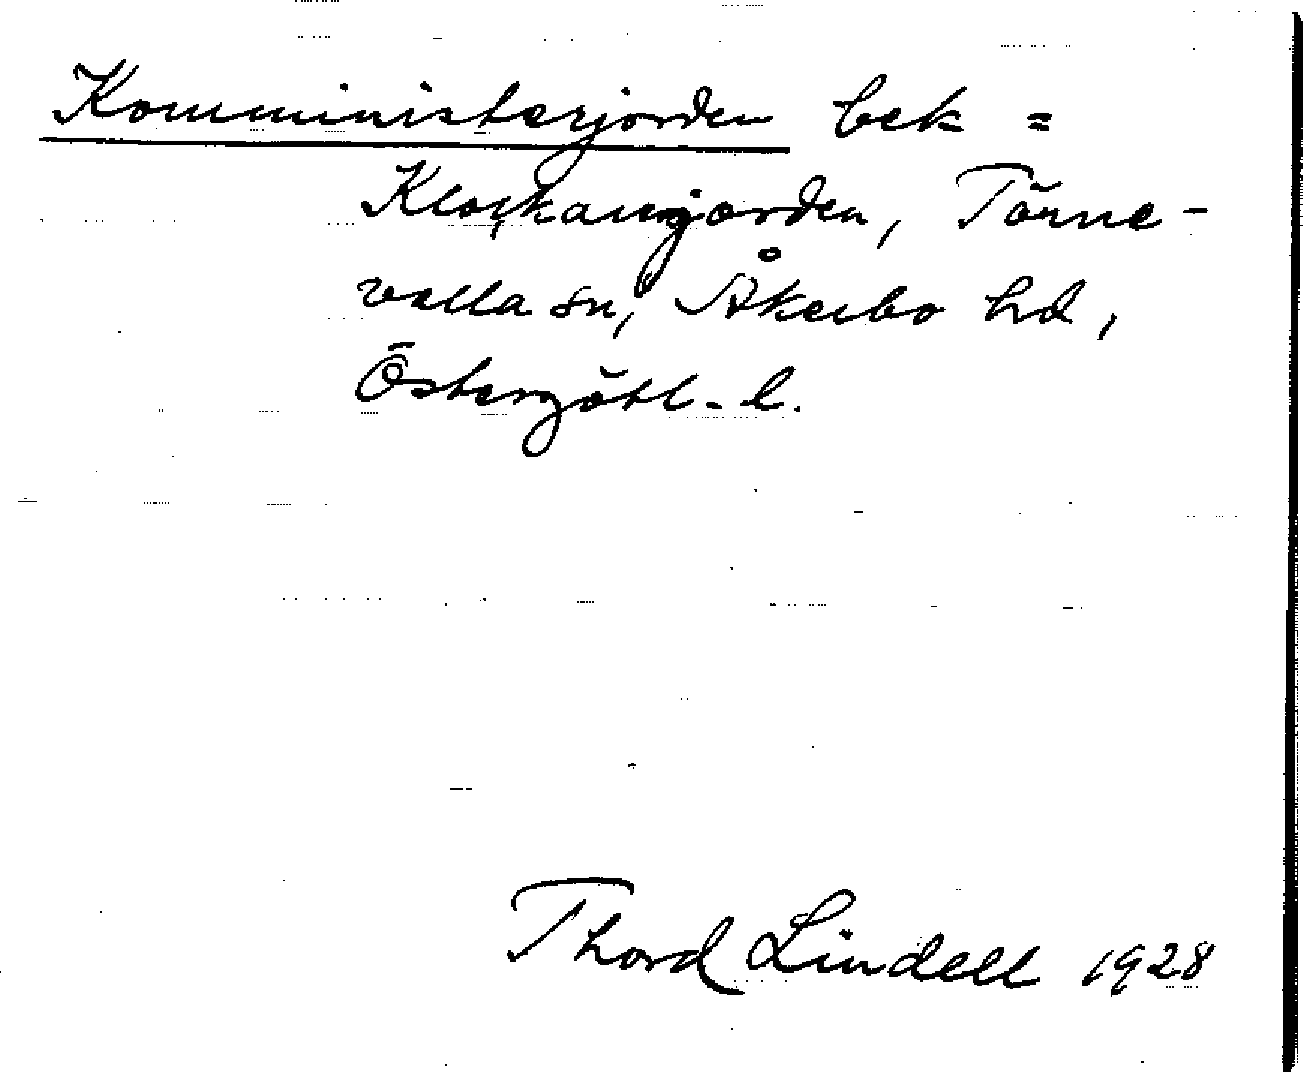 Kommunisterjorden bek =
Klockarejorden, Törne-
valla sn, Åkerbo hd,
Östergötl. l.
Thord Lindell 1928